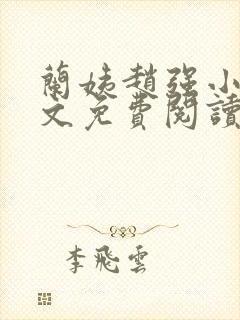 蘭姨趙強小
文免費閱讀
李飛雲